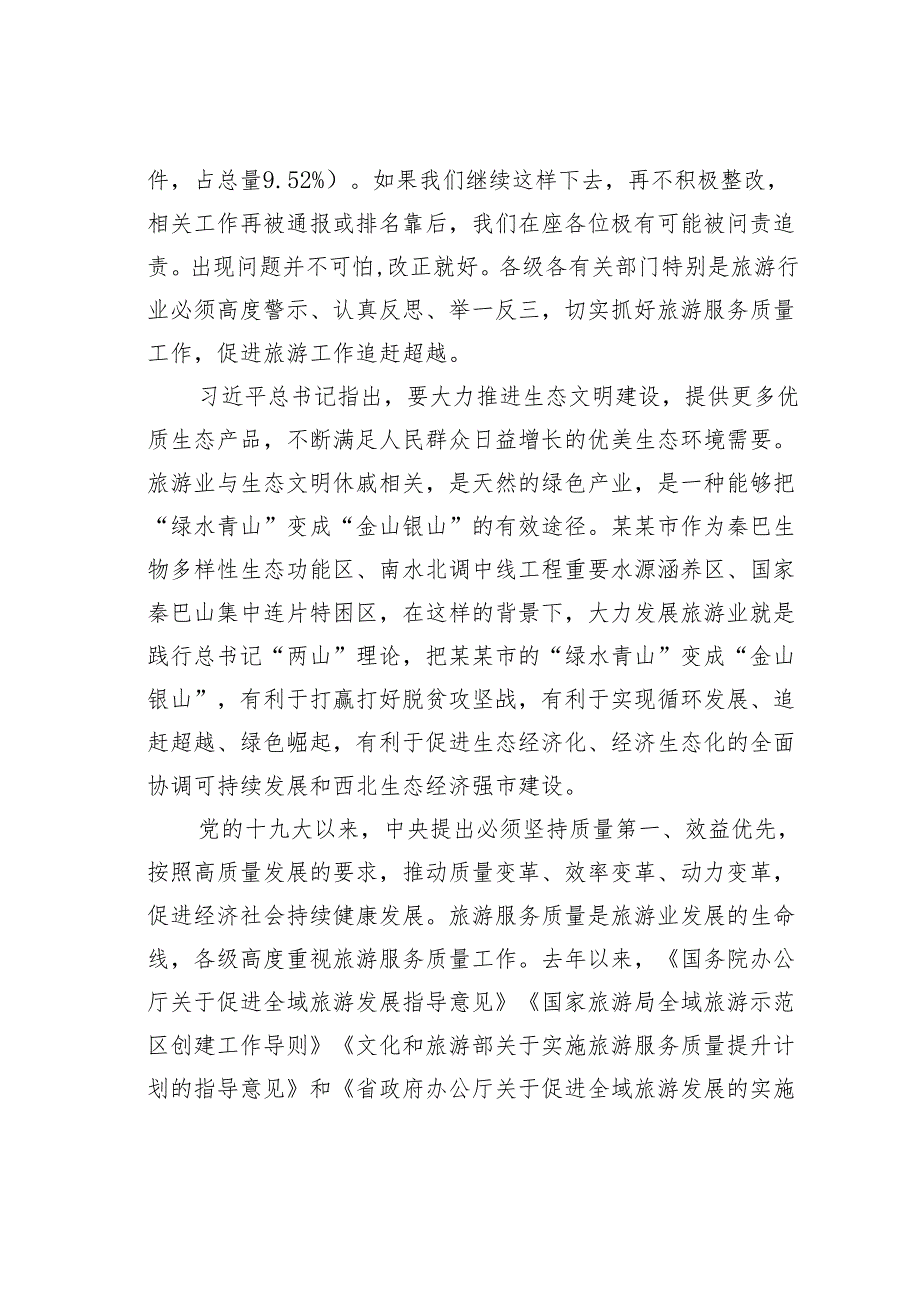 件，占总量9.52%）。如果我们继续这样下去，再不积极整改，
相关工作再被通报或排名靠后，我们在座各位极有可能被问责追
责。出现问题并不可怕,改正就好。各级各有关部门特别是旅游行
业必须高度警示、认真反思、举一反三，切实抓好旅游服务质量
工作，促进旅游工作追赶超越。
习近平总书记指出，要大力推进生态文明建设，提供更多优
质生态产品，不断满足人民群众日益增长的优美生态环境需要。
旅游业与生态文明休戚相关，是天然的绿色产业，是一种能够把
“绿水青山”变成“金山银山”的有效途径。某某市作为秦巴生
物多样性生态功能区、南水北调中线工程重要水源涵养区、国家
秦巴山集中连片特困区，在这样的背景下，大力发展旅游业就是
践行总书记“两山”理论，把某某市的“绿水青山”变成“金山
银山”，有利于打赢打好脱贫攻坚战，有利于实现循环发展、追
赶超越、绿色崛起，有利于促进生态经济化、经济生态化的全面
协调可持续发展和西北生态经济强市建设。
党的十九大以来，中央提出必须坚持质量第一、效益优先，
按照高质量发展的要求，推动质量变革、效率变革、动力变革，
促进经济社会持续健康发展。旅游服务质量是旅游业发展的生命
线，各级高度重视旅游服务质量工作。去年以来，《国务院办公
厅关于促进全域旅游发展指导意见》《国家旅游局全域旅游示范
区创建工作导则》《文化和旅游部关于实施旅游服务质量提升计
划的指导意见》和《省政府办公厅关于促进全域旅游发展的实施